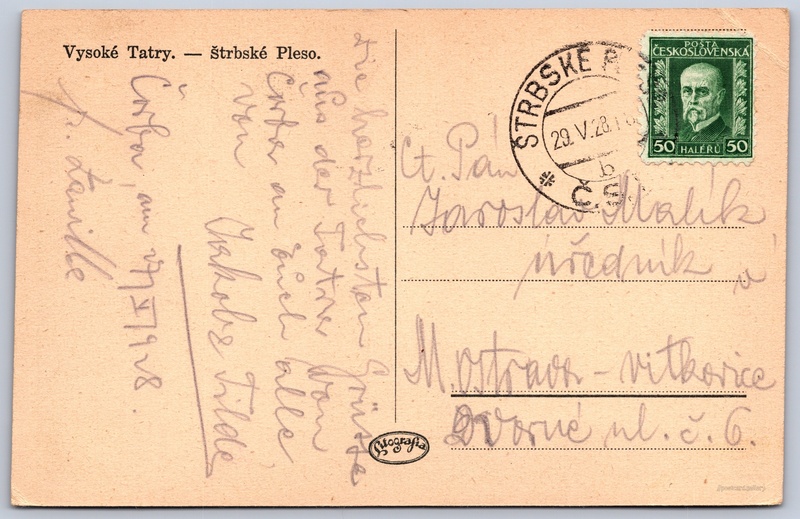 Vysoké Tatry. — Štrbské Pleso.
Die herzlichsten Grüsse
aus der Tatra von
Čorba an euch alle
von
Jakob & Tilde
Čorba, am
Familie
ŠTRBSKÉ P
29.V.28.1
b
Č.S.
POŠTA
ČESKOSLOVENSKÁ
50 HALÉŘŮ 50
Ct. Pán
Jaroslav Malík
úředník v
M. Ostrava - Vítkovice
Dvorné ul. č. 6.
Litografia